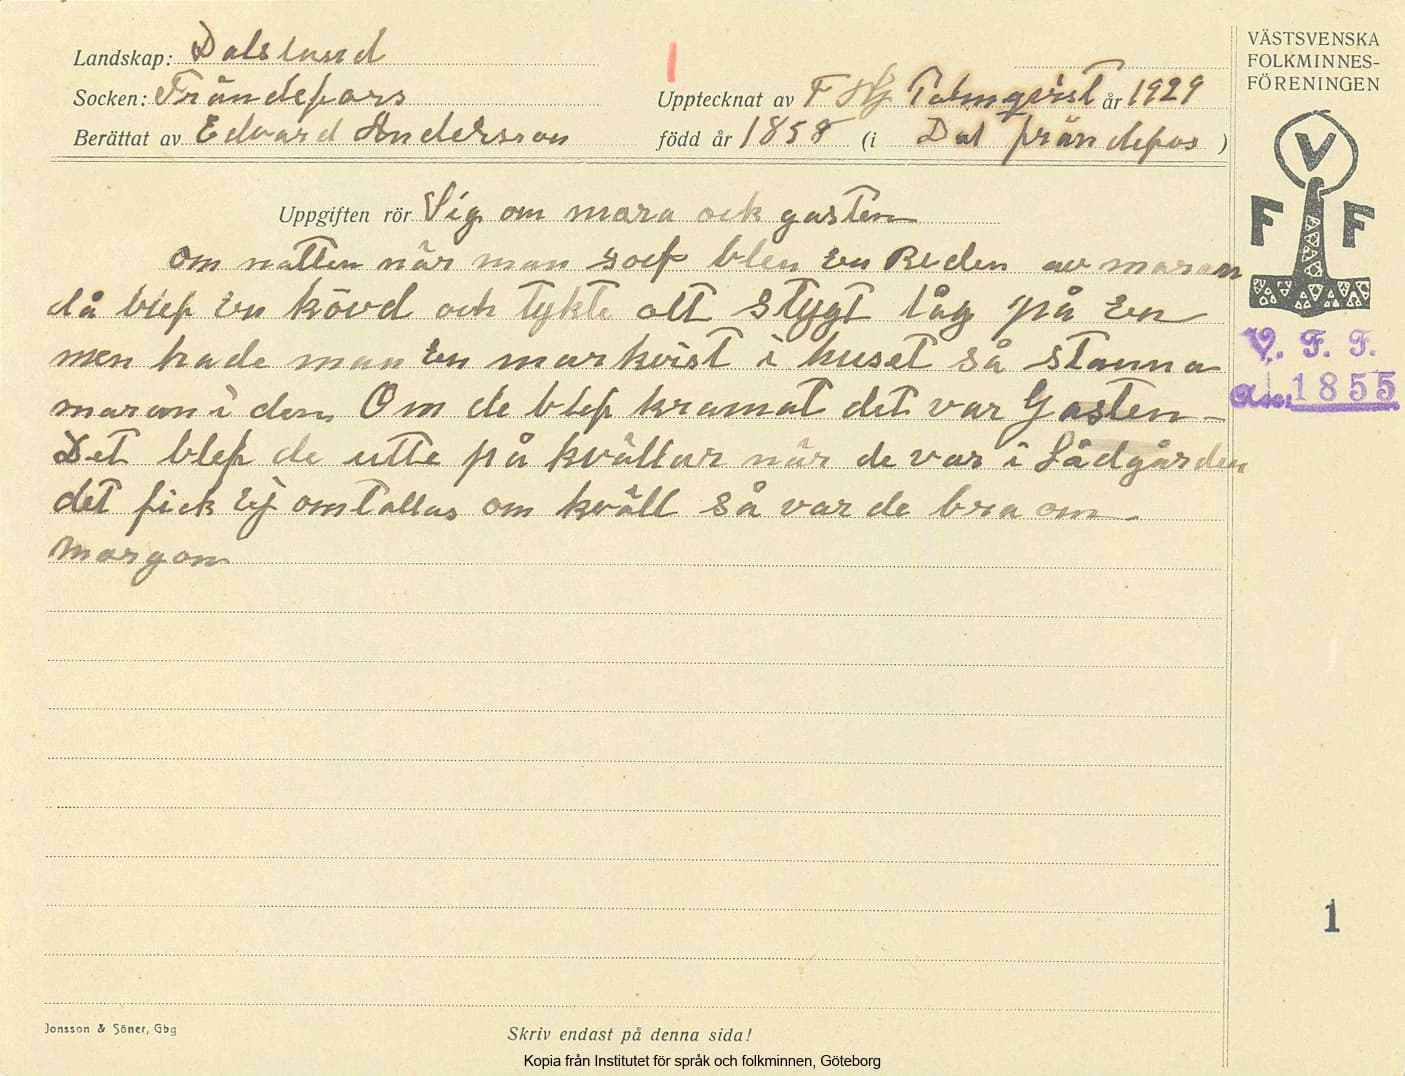 Landskap: Dalsland
Socken: Frändefors
Berättat av Edvard Andersson
Upptecknat av F Hj Palmqvist år 1929
född år 1858 (i Dal frändefos)
VÄSTSVENSKA
FOLKMINNES-
FÖRENINGEN
V
F F
V. F. F.
Acc: 1855
Uppgiften rör Sig om mara ock gasten
om natten när man sof blev en Reden av maran
då blef en kövd och tykte att stygt låg på en
men hade man en markvist i huset så stanna
maran i den Om de blef kramat det var Gasten
Det blef de utte på kvällar när de var i Lädgården
det fick Ej omtallas om kväll så var de bra om
margon
1
Jonsson & Söner, Gbg
Skriv endast på denna sida!
Kopia från Institutet för språk och folkminnen, Göteborg